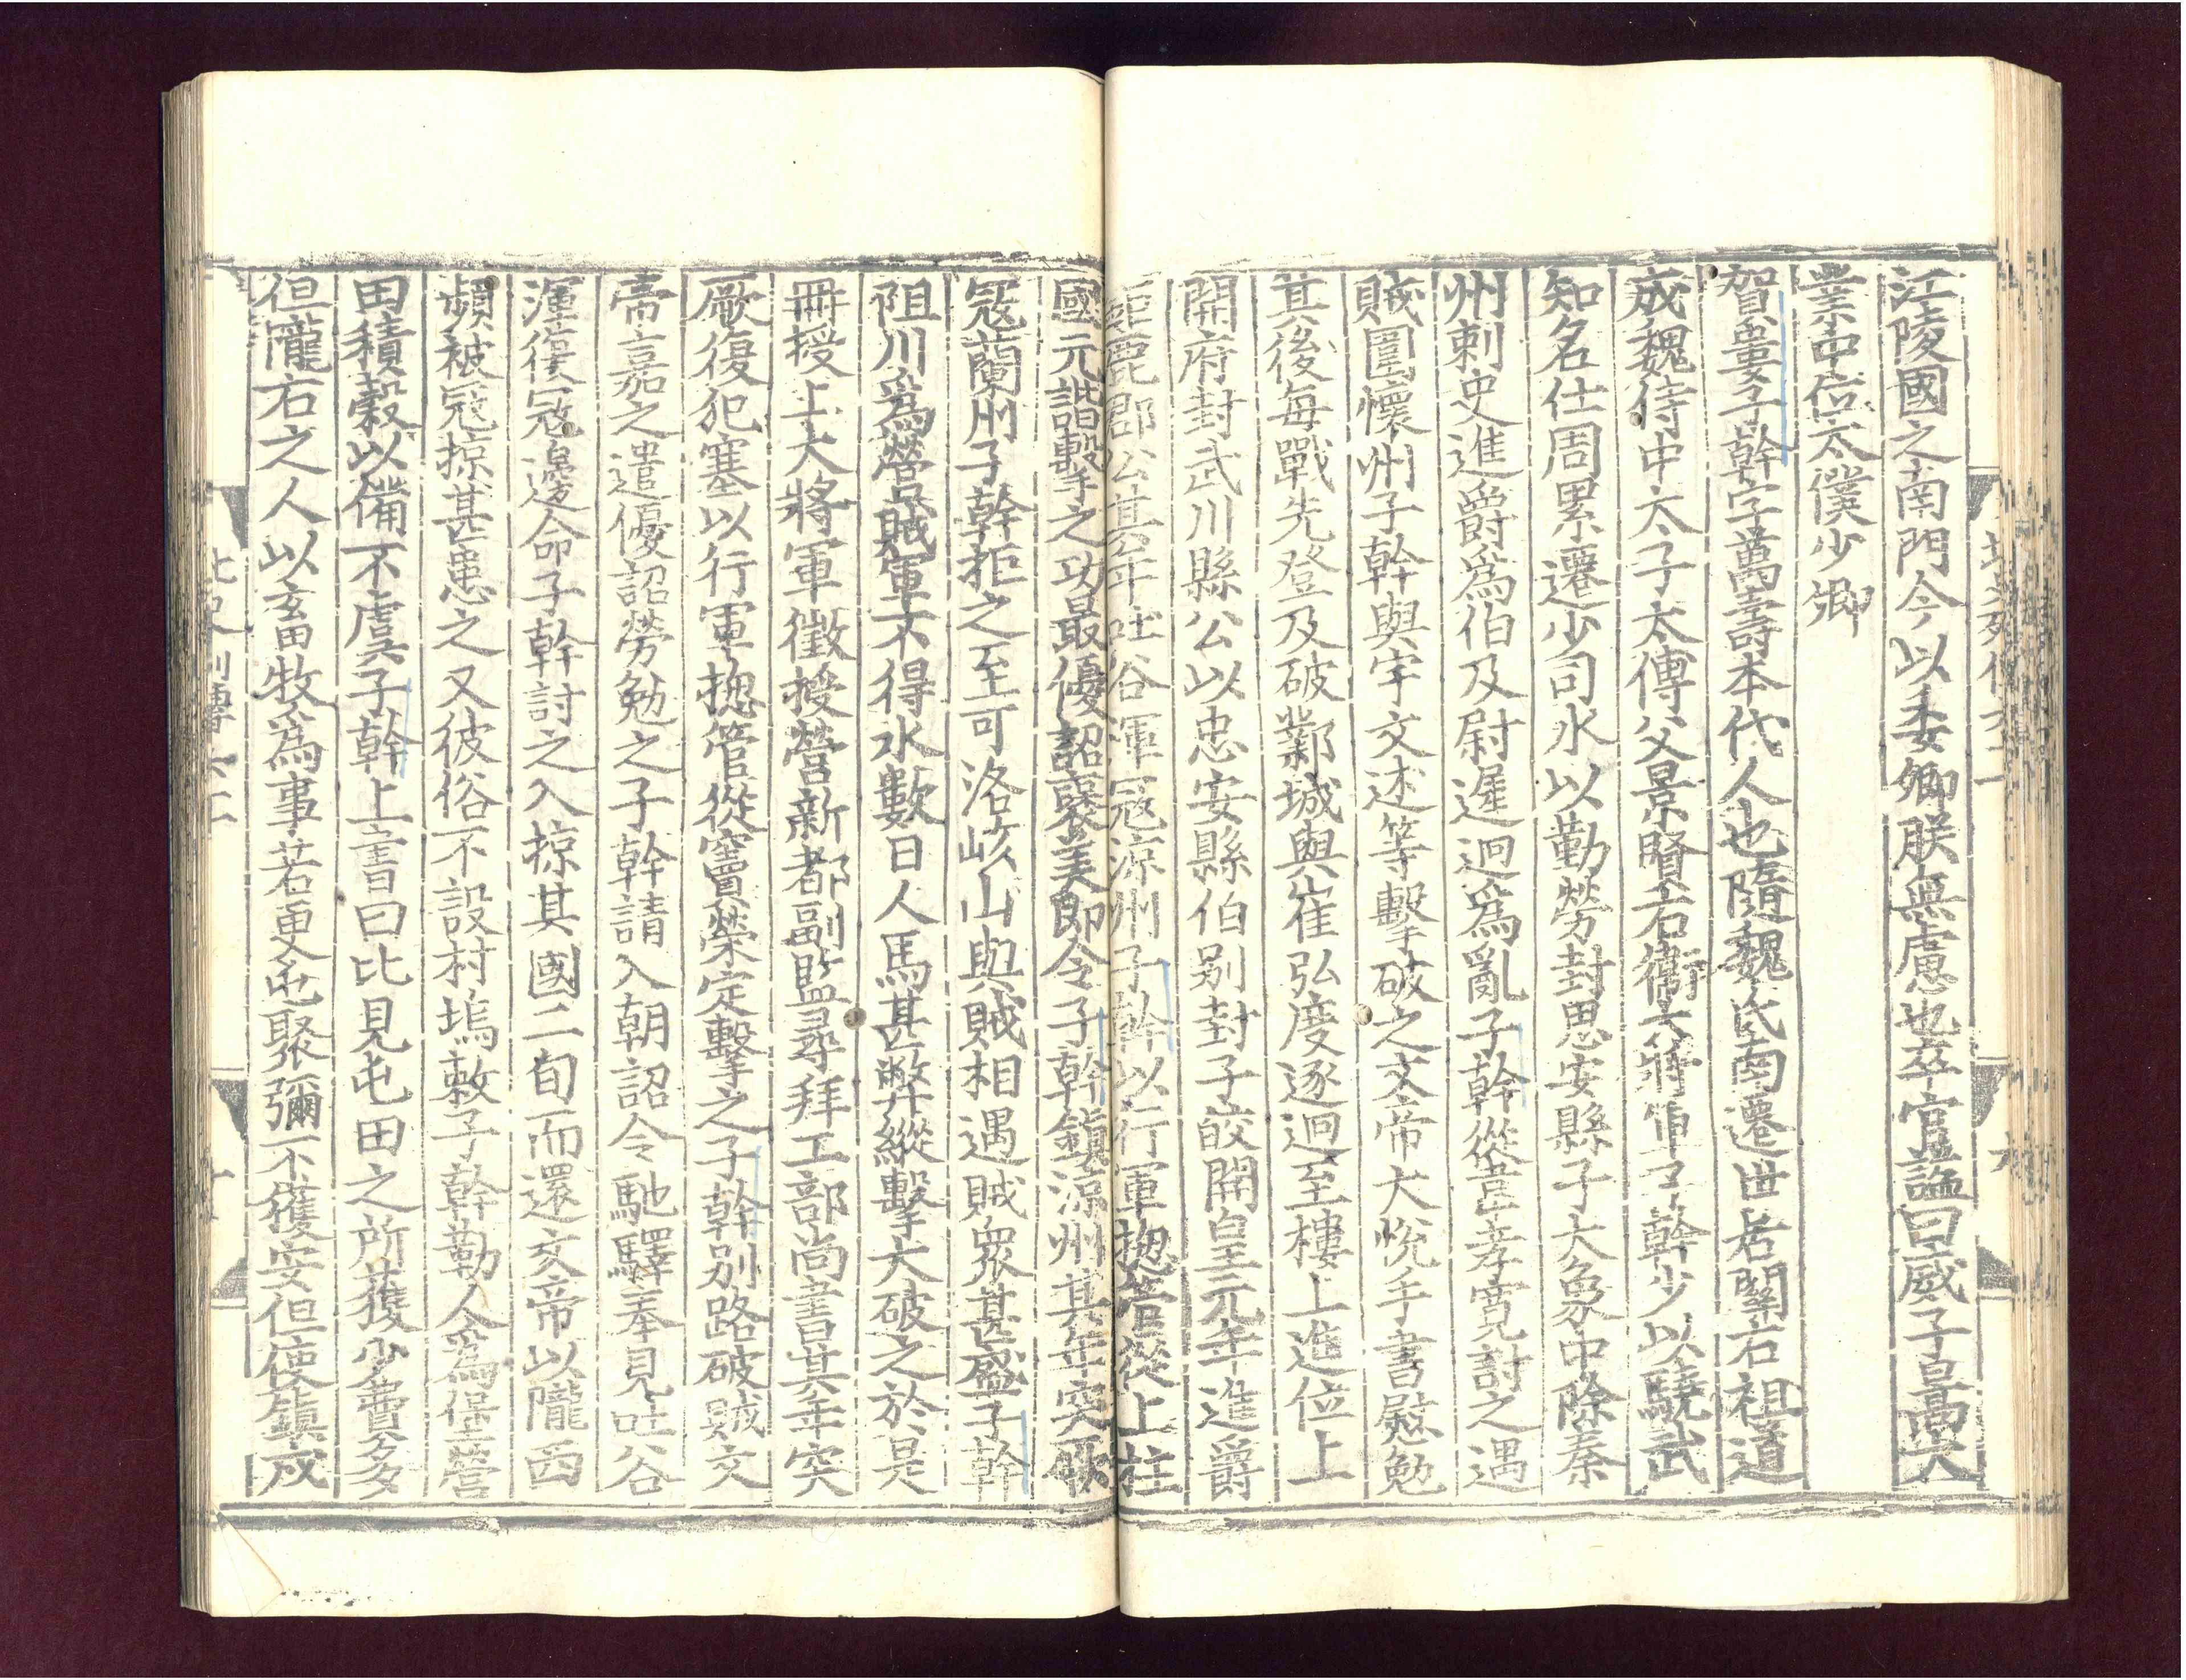 江陵國之南門今以委卿朕無慮也卒官諡曰威子皇高大
業中位太僕少卿
賀婁子幹字萬壽本代人也隨魏氏南遷世居關右祖道
成魏侍中太子太傅父景賢右衞大將軍子幹少以驍武
知名仕周累遷少司水以勤勞封思安縣子大象中除秦
州刺史進爵爲伯及尉遲迥爲亂子幹從韋孝寬討之遇
賊圍懷州子幹與宇文述等擊破之文帝大悅手書慰勉
其後每戰先登及破鄴城與崔弘度逐迥至樓上進位上
開府封武川縣公以忠安縣伯別封子皎開皇元年進爵
鉅鹿郡公其年吐谷渾寇涼州子幹以行軍揔管從上柱
國元諧擊之功最優詔襃美即令子幹鎮涼州其年突厥
寇蘭州子幹拒之至可洛峐山與賊相遇賊衆甚盛子幹
阻川爲營賊軍不得水數日人馬甚弊縱擊大破之於是
冊授上大將軍徵授營新都副監尋拜工部尚書其年突
厥復犯塞以行軍揔管從竇榮定擊之子幹別路破賊文
帝嘉之遣優詔勞勉之子幹請入朝詔令馳驛奉見吐谷
渾復寇邊命子幹討之入掠其國二旬而還文帝以隴西
頻被寇掠甚患之又彼俗不設村塢敕子幹勒人爲堡營
田積穀以備不虞子幹上書曰比見屯田之所獲少費多
但隴右之人以畜牧爲事若更屯聚彌不獲安但使鎮戍